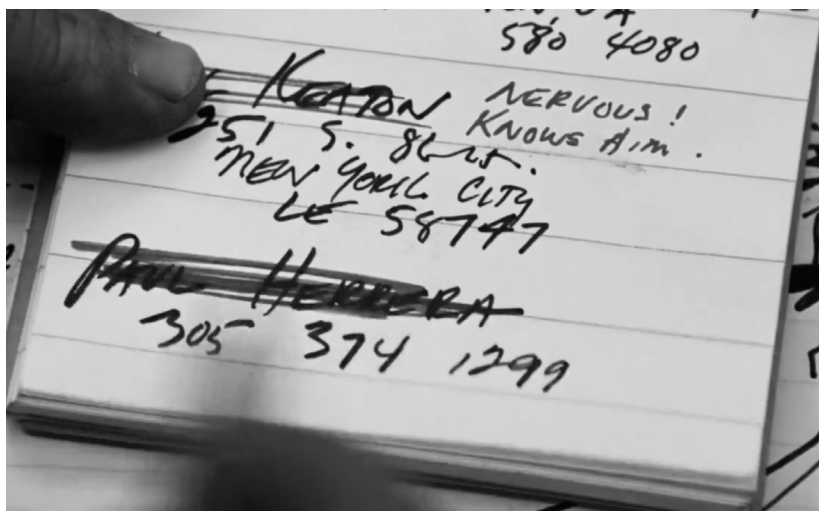 580 4080
KEATON
NERVOUS!
KNOWS AIM.
251 S. 8th St.
NEW YORK CITY
LE 58747
PAUL HERRERA
305 374 1299